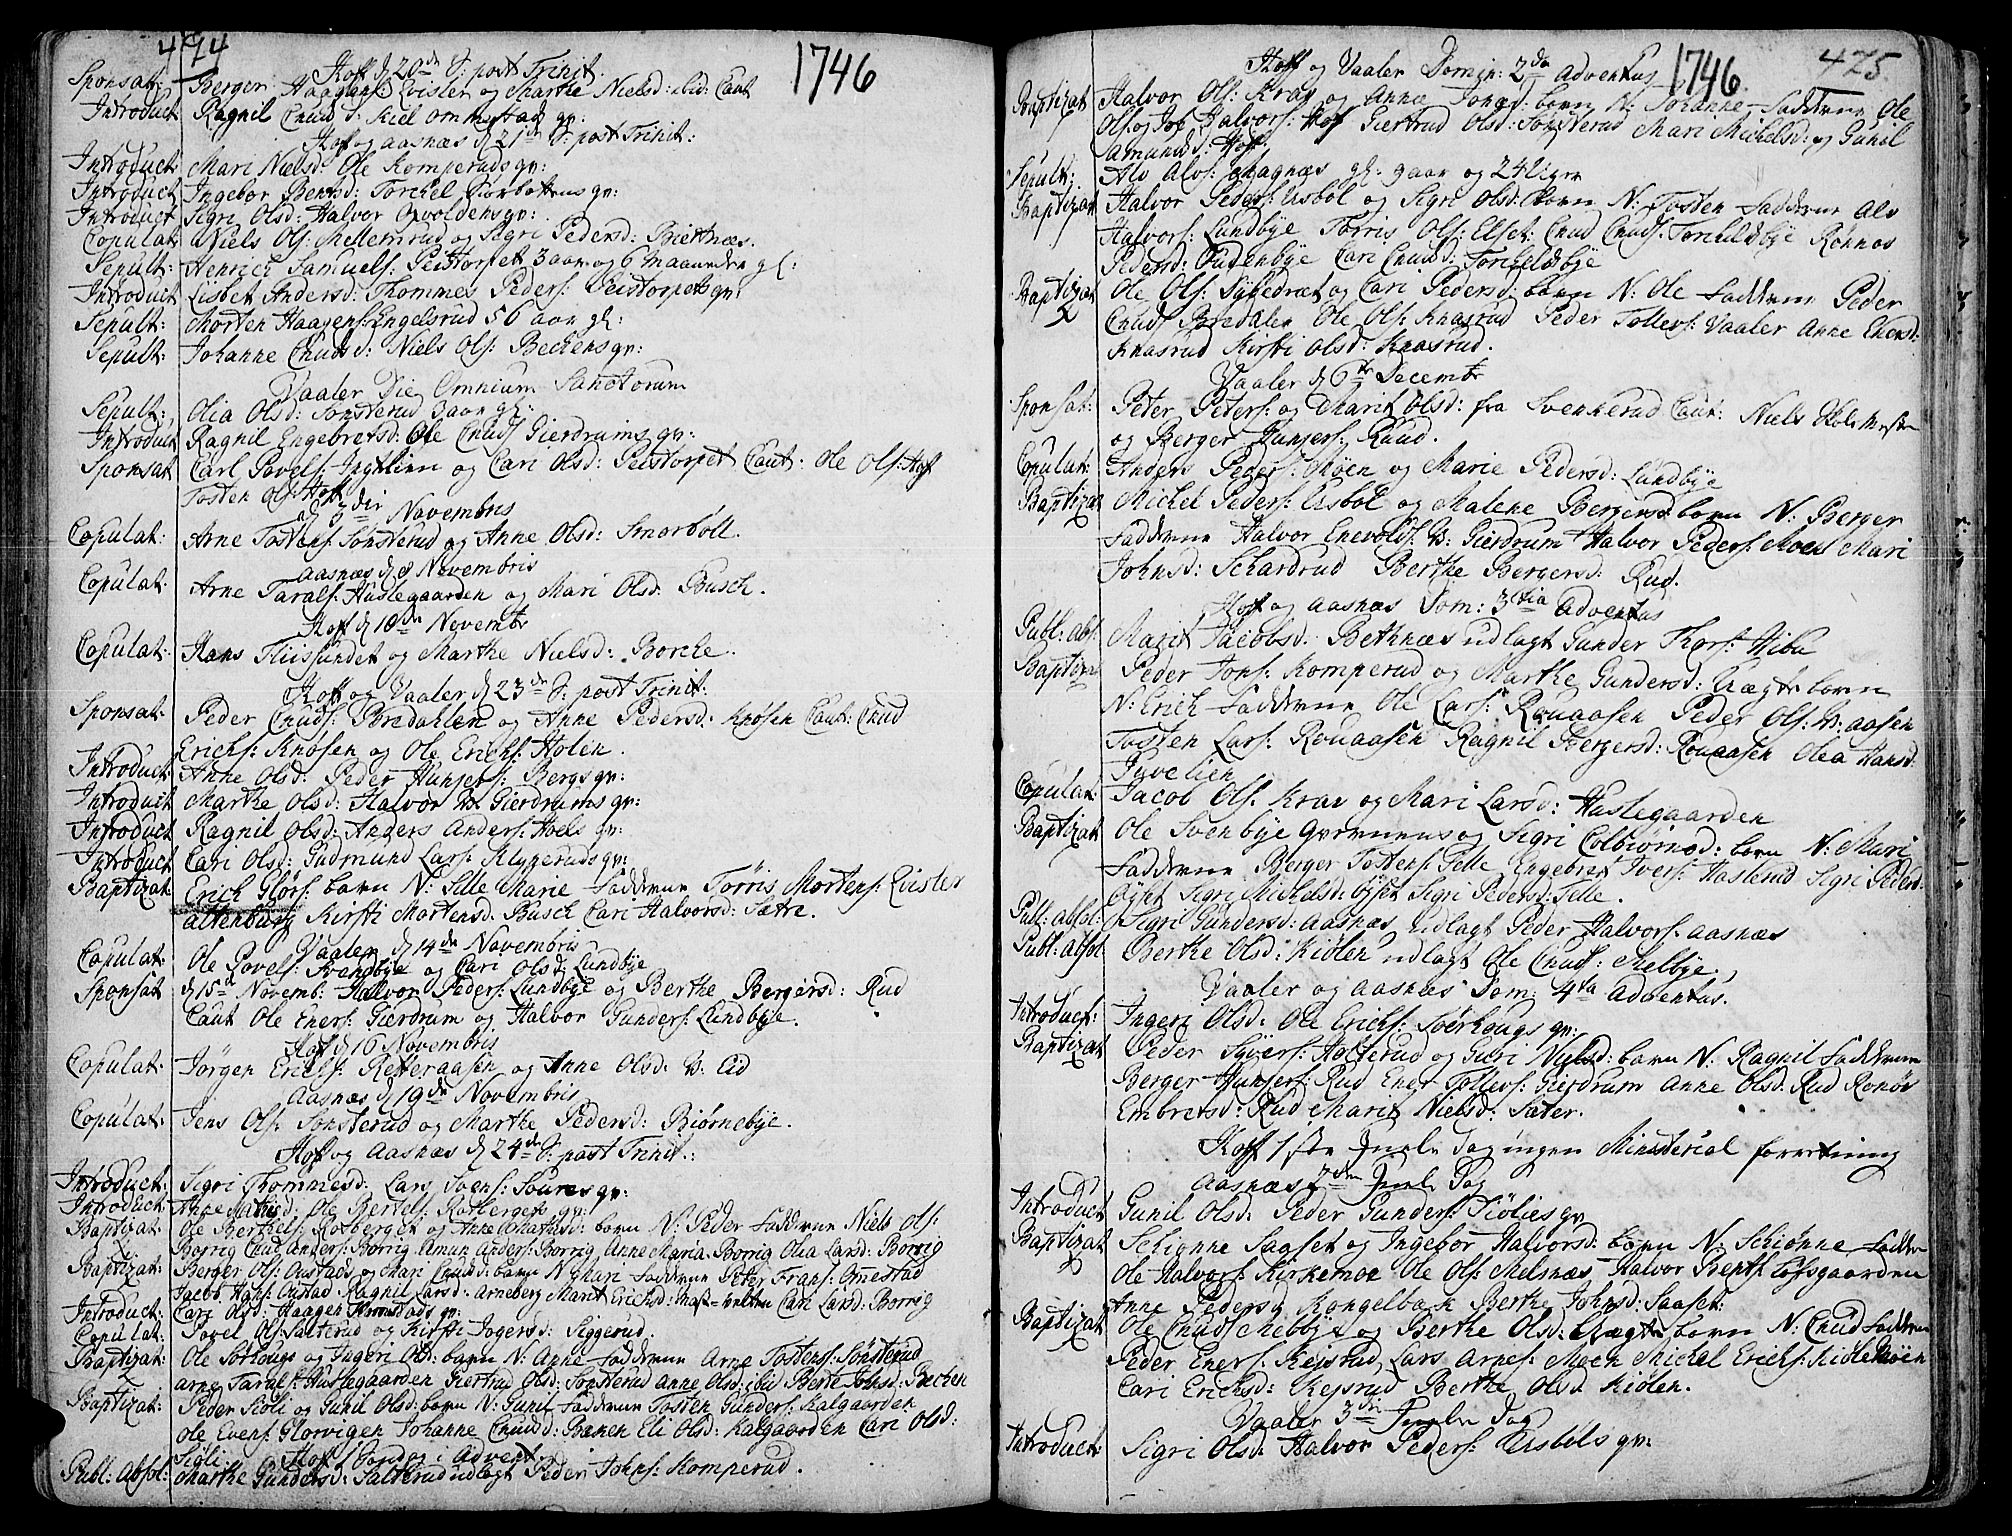 474
1746
Hoff d 20de S: post Trinit.
Sponsat: Berger Haagens: Qvisler og Marthe Nielsd: ibid: Caut
Introduct Ragnil Cnud d: Kiel ommstad gv:
Hoff og aasnæs d 21de S: post Trinit:
Introduct Mari Nielsd: Ole Komperuds gv:
Introduct Ingebor Bentsd: Torchel gv:
Introduct Sigri Olsd: Halvor Opvoldens gv:
Copulat Niels Ols: Mellemrud og Sigri Pedersd: Biertnæs.
Sepult: Henrich Samuels: Peistorpet 3 aar og 6 maaneder gl:
Introduct Lisbet Andersd: Thommes Peders: Peistorpets gv:
Sepult: Morten Haagens: Engelsrud 56 aar gl:
Sepult: Johanne Cnudsd: Niels Ols: Beckens gv:
Vaaler Die Omnium Sanctorum
Sepult: Olia Olsd: Sønsterud 3 aar gl:
Introduct Ragnil Engebretsd: Ole Cnuds Gierdrums gv:
Sponsat Carl Povels: Ingelien og Cari Olsd: Peistorpet Caut: Ole Ols: Hoff
Tosten Ols: Hoff
Novembris
Copulat: Arne Tostens: Sønsterud og Anne Olsd: Smorboll.
Aasnæs d 8 Novembris
Copulat: Arne Tarals: Huslegaarden og Mari Olsd: Busch.
Hoff d 10de Novembr
Copulat: Hans Fliisundet og Marthe Nielsd: Borche.
Hoff og Vaaler d 23de S: post Trinit:
Sponsat: Peder Cnuds: Bredahlen og Anne Pedersd: Knøsen Caut: Cnud
Erichs: Knøsen og Ole Erichs: Holen.
Introduct: Anne Olsd: Peder Hunsers: Bergs gv:
Introduct Marthe Olsd: Halvor W Gierdrums gv:
Introduct Ragnil Olsd: Anders Anders: Hoels gv:
Introduct Cari Olsd: Gudmund Lars: Klyneruds gv:
Baptizat Erich Glørs: barn N: Sille Marie Fadderne Törris Mortens: Qvisler
altenburg Kirsti Mortensd: Busch Cari Halvorsd: Sætre.
Vaaler d 14de Novembris
Copulat: Ole Povels: Svendbye og Cari Olsd: Lundbye
Sponsat d 15de Novemb: Halvor Peders: Lundbye og Berthe Bergersd: Rud
Caut Ole Eners: Gierdrum og Halvor Gunders: Lundbye.
Hoff d 16 Novembris
Copulat: Jørgen Erichs: Retteraasen og Anne Olsd: W: Eid
Aasnæs d 19de Novembris
Copulat: Jens Ols: Sønsterud og Marthe Pedersd: Biørnebye.
Hoff og Aasnæs d 24de S: post Trinit::
Introduct: Sigri Thommesd: Lars Svens: Soures gv:
Introduct: Anne Mathisd: Ole Bertels: Rotbergets gv:
Baptizat: Ole Berthels: Rotberget og Anne Mathisd: barn N: Peder Fadderne Niels Ols:
2 Borrig Cnud Anders: Borrig Amun Anders: Borrig Anne Maria Borrig Olia Larsd: Borrig
Baptizat: Berger Ols: Oustads og Mari Cnudsd: barn N Mari Fadderne Peter Frans: Omestad
Jacob Hans: Oustad Ragnil Larsd: Arneberg Marit Erichsd: Cari Larsd: Borrig
Introduct: Cari Olsd: Haagen gv:
Copulat: Povel Ols: Salterud og Kirsti Jogersd: Siggerud.
Baptizat: Ole Sørhougs og Ingeri Olsd: barn N: Anne Fadderne Arne Tostens: Sønsterud
2 arne Tarals: Huslegaarden Giertrud Olsd: Sønsterud Anne Olsd: ibid Berte Johsd: Becken
Baptizat: Peder Siöli og Gunil Olsd: barn N: Gunil Fadderne Tosten Gunders: Kalgaarden
Ole Evens: Glorvigen Johanne Cnudsd: Bænen Eli Olsd: Kalgaarden Cari Olsd:
Siöli. Hoff 1 Søndag i Advent.
Publ: Absol: Marthe Gundersd: Salterud udlagt Peder Johns: Komperud.
475
1746
Hoff og Vaaler Domin: 2da Adventus
Baptizat Halvor Ols: Krav og Anne Johsd: barn N: Johanne Fadderne Ole
Ols: og Joh Halvors: Hof Giertrud Olsd: Sønsterud Mari Michelsd: og Gunil
Samunsd: Hof.
Sepult: Alv Alvs: Magnæs gl: 9 aar og 24 Uger
Baptizat Halvor Peders: Eisbøl og Sigri Olsd: barn N: Tosten Fadderne Alv
Halvors: Lundbye Torris Ols: Elset: Cnud Cnuds: Torchelsbye Rønnov
Pedersd: Oudenbye Cari Cnudsd: Torchelsbye
Baptizat Ole Ols: Dybedræt og Cari Pedersd: barn N: Ole Fadderne Peder
2 Cnuds Bredalen Ole Ols: Knasrud Peder Tollers: Vaaler Anne Enersd:
Knasrud Kirsti Olsd: Knasrud.
Vaaler d 6te Decembr
Sponsat: Peter Peters: og Marit Olsd: fra Svenkerud Caut: Niels Skolemester
og Berger Hunsers: Ruud.
Copulat: Anders Peders: Moen og Marie Pedersd: Lundbye
Baptizat Michel Peders: Eisbøl og Malene Bergersd: barn N: Berger
Fadderne Halvor Enevolds: W: Gierdrum Halvor Peders: Moen Mari
Johnsd: Schardrud Berthe Bergersd: Rud.
Hoff og Aasnæs Dom: 3tia Adventus
Publ: Abs: Marit Jacobsd: Bethnæs udlagt Gunder Thors: Hibu
Baptizat Peder Jons: Komperud og Marthe Gundersd: Uægte barn
N: Erich Fadderne Ole Lars: Rouaasen Peder Ols: W: aasen
Tosten Lars: Rouaasen Ragnil Bergersd: Rouaasen Olea Hansd:
Tyvelien
Copulat: Jacob Ols: Krav og Mari Larsd: Huslegaarden
Baptizat Ole Svenbye og Sigri Colbiørnsd: barn N: Mari
Fadderne Berger Tostens: Sille Engebret Ivers: Haslerud Sigri Pedersd:
Oyset Sigri Michelsd: Oyset Sigri Pedersd: Sille.
Publ: absol: Sigri Gundersd: Aasnæs udlagt Peder Halvors: Aasnæs
Publ: Absol Berthe Olsd: Kiölen udlagt Ole Cnuds: Melbye.
Vaaler og Aasnæs Dom: 4ta Adventus.
Introduct: Ingeri Olsd: Ole Erichs: Sörhougs gv:
Baptizat Peder Syvers: Holterud og Guri Nielsd: barn N: Ragnil Fadderne
Berger Hunsers: Rud Ener Tollevs: Gierdrum Anne Olsd: Rud Ronøv
Embretsd: Rud Marit Nielsd: Sæter.
Hoff 1ste Juele Dag ingen Ministerial forretning
Aasnæs 2den Juele Dag
Introduct Gunil Olsd: Peder Gunders: Siölies gv
Baptizat Schiønne Sagset og Ingebor Halvorsd: barn N: Schiønne Fadder
2 Ole Halvors: Kirkemoe Ole Ols: Melsnæs Halvor Bents: Lofsgaarden
Anne Pedersd Kongelbæk Berthe Johnsd: Saaset:
Baptizat Ole Cnuds Mebbye og Berthe Olsd: Uægte barn N: Cnud Fadderne
Peder Eners: Kejsrud Lars Arnes: Moen Michel Erichs: Kiölemöen
Cari Erichsd: Kejsrud Berthe Olsd Kiölen.
Vaaler 3die Juele Dag
Introduct: Sigri Olsd: Halvor Peders: Eisbøls gv: